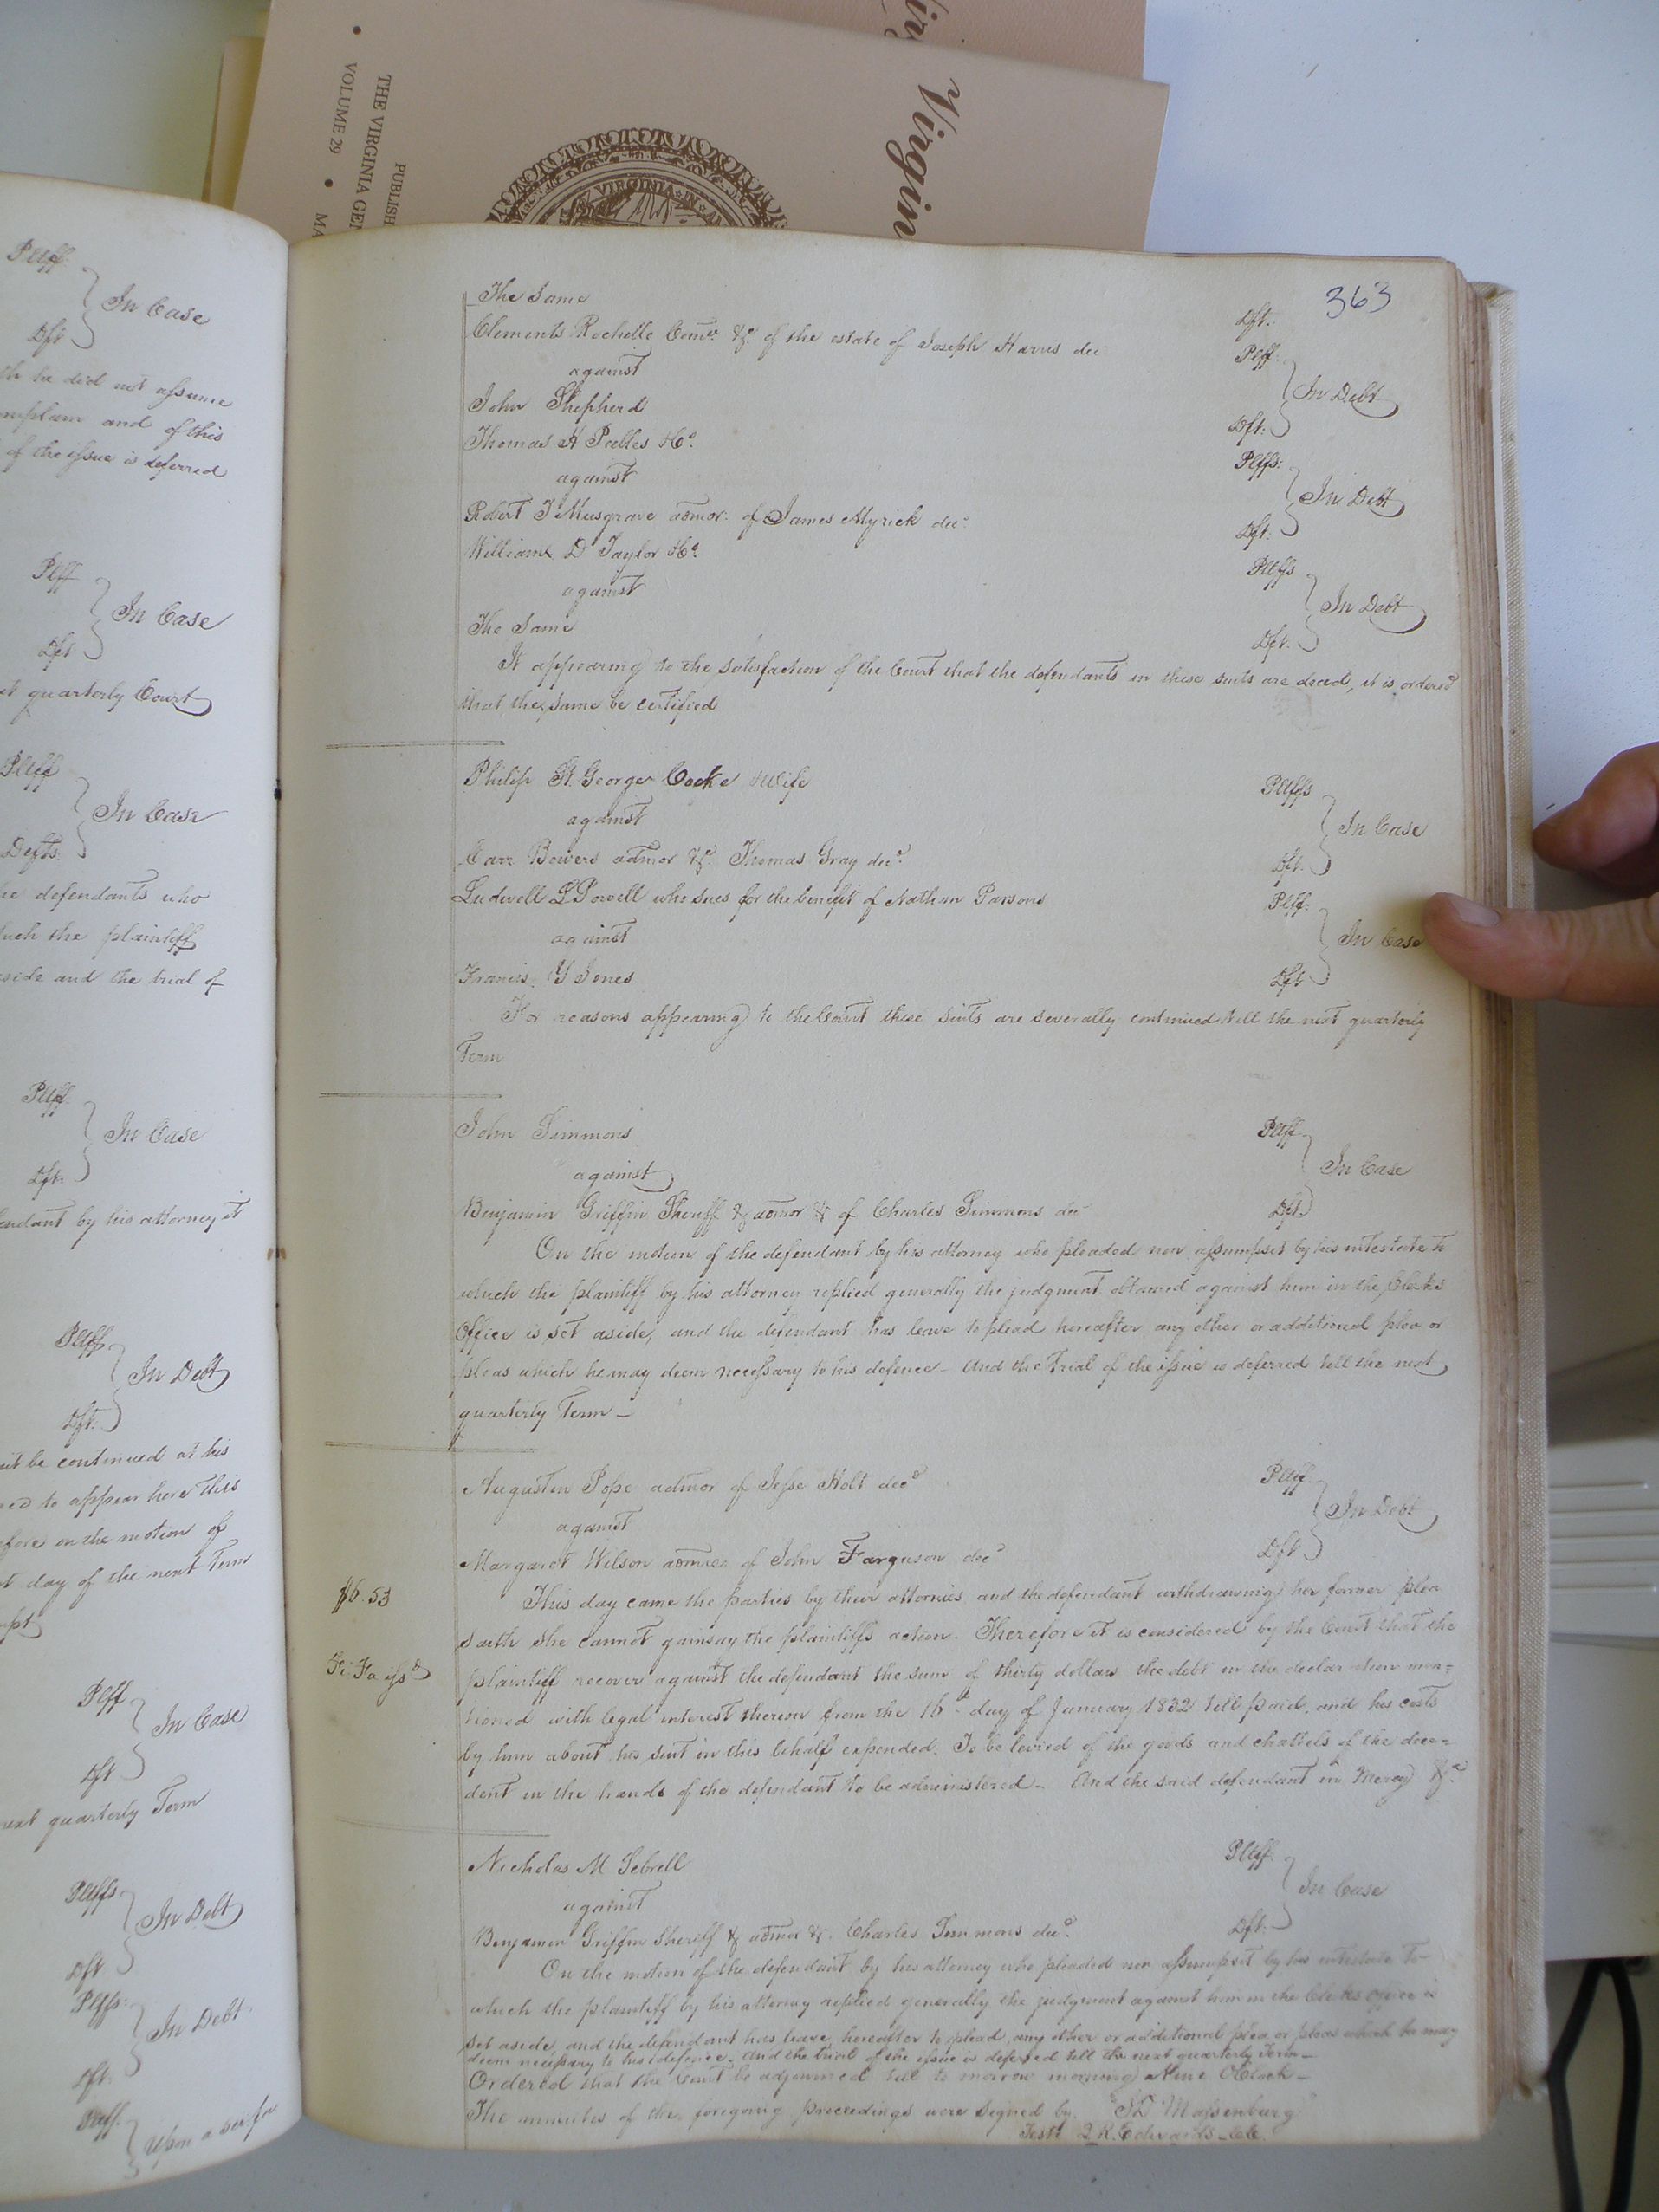 THE VIRGINIA GEN
VOLUME 29 • MA
PUBLISH
Virgin
VIRGINIA
Pltff
In Case
Dft
he did not assume
and of this
of the issue is deferred
Pltff
In Case
Dft
quarterly Court
Pltff
In Case
Defts.
defendants who
the plaintiff
aside and the trial of
Pltff.
In Case
Dft.
by his attorney it
Pltff
In Debt
Dft.
be continued at his
to appear here this
on the motion of
day of the next Term
Pltff
In Case
Dft
next quarterly Term
Pltffs
In Debt
Dft
Pltffs.
In Debt
Dft.
Pltff.
Upon a
363
The Same
Dft.
Clements Rochelle Comr. &c. of the estate of Joseph Harris dec
Pltff.
against
In Debt
John Shepherd
Dft.
Thomas H Peebles &Co.
Pltffs.
against
In Debt
Robert J Musgrave admor. of James Myrick decd.
Dft.
William D Taylor &Co.
Pltffs
against
In Debt
The Same
Dft.
It appearing to the satisfaction of the Court that the defendants in these suits are dead, it is ordered
that the same be certified
Philip St. George Cocke & Wife
Pltffs
against
In Case
Carr Bowers admor &c. Thomas Gray decd.
Dft.
Ludwell L Powell who sues for the benefit of Nathan Parsons
Pltff.
against
In Case
Francis Y Jones
Dft
For reasons appearing to the Court these suits are severally continued till the next quarterly
Term
John Simmons
Pltff.
against
In Case
Benjamin Griffin Sheriff & admor & of Charles Simmons dec
Dft.
On the motion of the defendant by his attorney who pleaded non assumpsit by his intestate to
which the plaintiff by his attorney replied generally the judgment obtained against him in the Clerks
Office is set aside, and the defendant has leave to plead hereafter any other or additional plea or
pleas which he may deem necessary to his defence - And the Trial of the issue is deferred till the next
quarterly Term -
Augustin Pope admor of Jesse Holt decd
Pltff
against
In Debt
Margaret Wilson admrx of John Farguson decd
Dft
$6.53
This day came the parties by their attornies, and the defendant withdrawing her former plea
saith she cannot gainsay the plaintiffs action. Therefore it is considered by the Court that the
Fi Fa issd
plaintiff recover against the defendant the sum of thirty dollars the debt in the declaration men=
tioned with legal interest thereon from the 16th day of January 1832 till paid, and his costs
by him about his suit in this behalf expended. To be levied of the goods and chattels of the dece=
dent in the hands of the defendant to be administered - And the said defendant in Mercy &c.
Nicholas M Sebrell
Pltff.
against
In Case
Benjamin Griffin Sheriff & admor &c. Charles Simmons decd.
Dft.
On the motion of the defendant by his attorney who pleaded non assumpsit by his intestate to
which the plaintiff by his attorney replied generally the judgment against him in the Clerks office is
set aside, and the defendant has leave hereafter to plead any other or additional plea or pleas which he may
deem necessary to his defence. And the trial of the issue is deferred till the next quarterly Term -
Ordered that the Court be adjourned till to morrow morning Nine OClock -
The minutes of the foregoing proceedings were signed by JD Massenburg
Teste J.R. Edwards